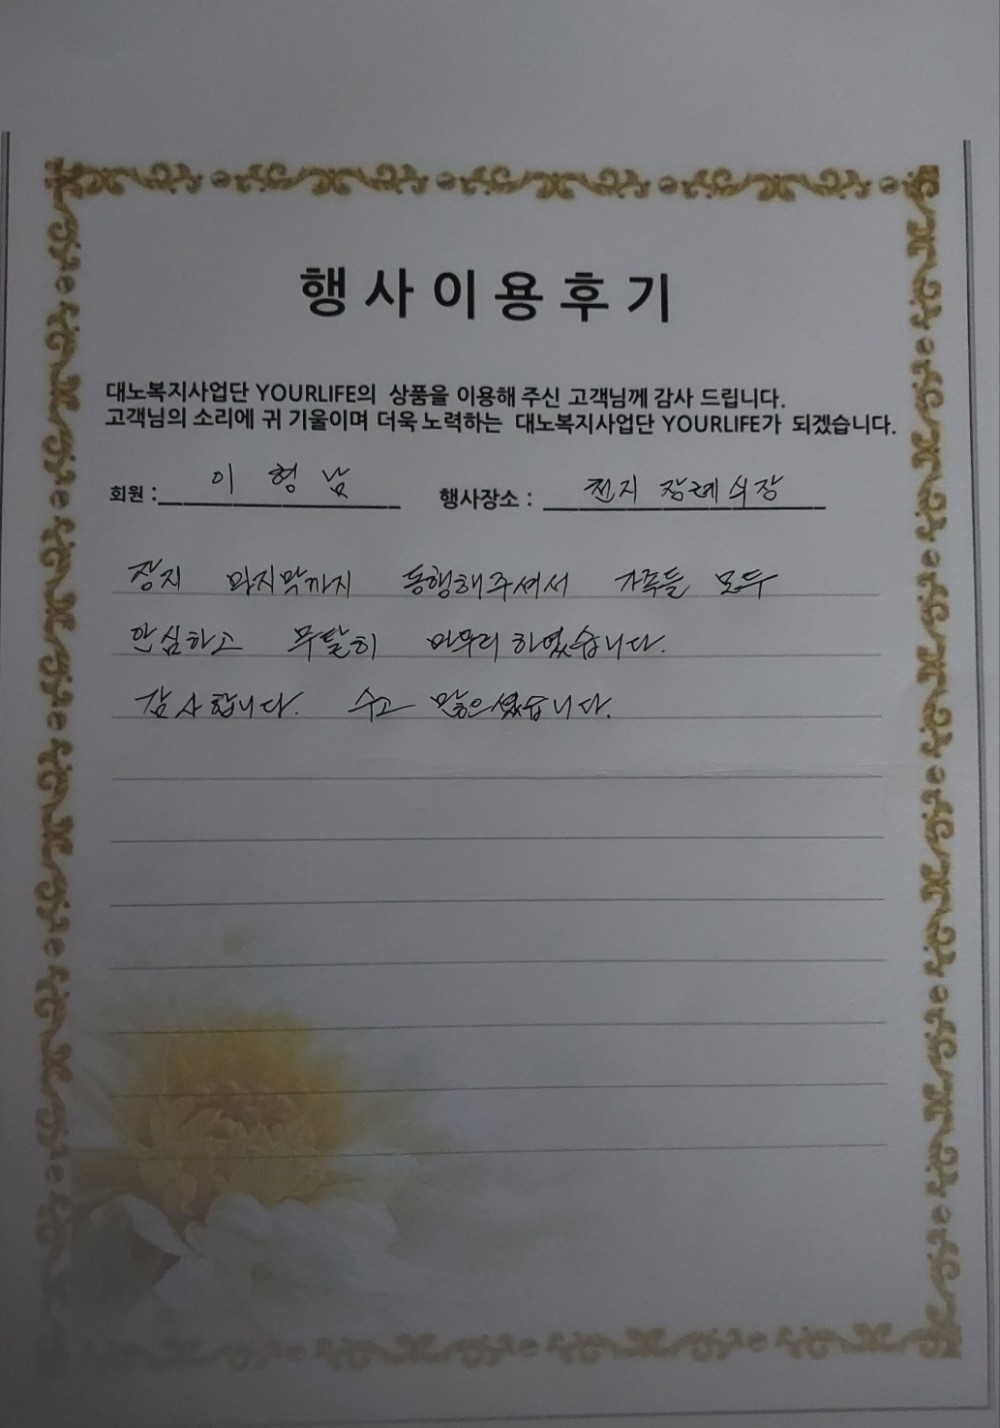 행사이용후기
대노복지사업단 YOURLIFE의 상품을 이용해 주신 고객님께 감사 드립니다.
고객님의 소리에 귀 기울이며 더욱 노력하는 대노복지사업단 YOURLIFE가 되겠습니다.
회원 : 이 형 남 행사장소 : 장례식장
장지 마지막까지 동행해주셔서 가족들 모두
안심하고 무탈히 마무리 하였습니다.
감사합니다. 수고 많으셨습니다.